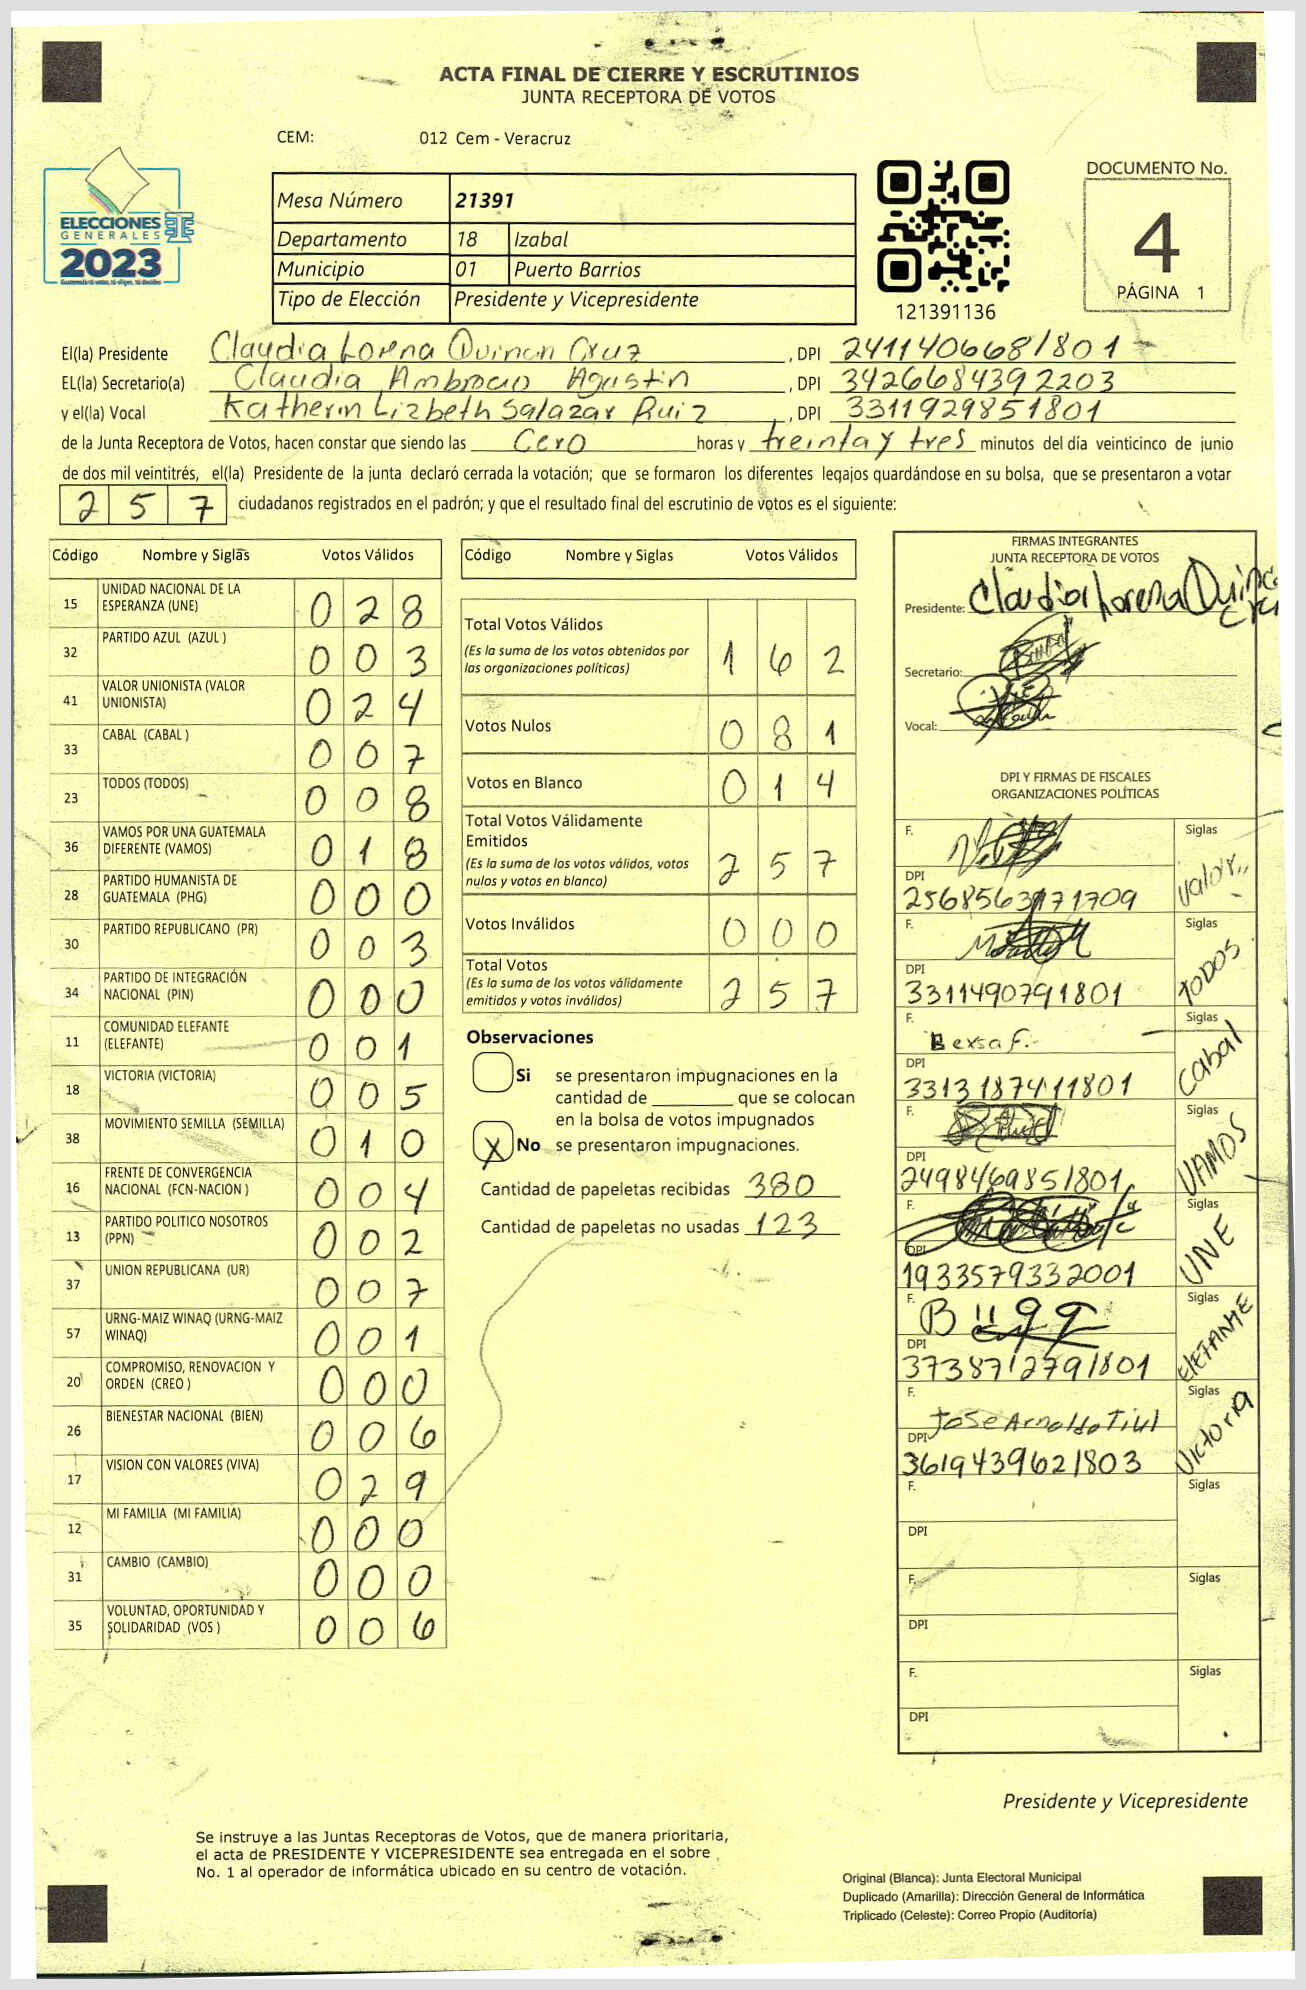 ACTA FINAL DE CIERRE Y ESCRUTINIOS
JUNTA RECEPTORA DE VOTOS
CEM: 012 Cem - Veracruz
ELECCIONES
GENERALES
2023
Guatemala tú votas, tú eliges, tú decides
TSE
Mesa Número 21391
Departamento 18 Izabal
Municipio 01 Puerto Barrios
Tipo de Elección Presidente y Vicepresidente
121391136
DOCUMENTO No.
4
PÁGINA 1
El(la) Presidente Claudia Lorena Quinon Cruz, DPI 2411406681801
EL(la) Secretario(a) Claudia Ambrocio Agustin, DPI 3426684392203
y el(la) Vocal Katherin Lizbeth Salazar Ruiz, DPI 3311929851801
de la Junta Receptora de Votos, hacen constar que siendo las Cero horas y treinta y tres minutos del día veinticinco de junio
de dos mil veintitrés, el(la) Presidente de la junta declaró cerrada la votación; que se formaron los diferentes legajos guardándose en su bolsa, que se presentaron a votar
257 ciudadanos registrados en el padrón; y que el resultado final del escrutinio de votos es el siguiente:
Código Nombre y Siglas Votos Válidos
15 UNIDAD NACIONAL DE LA ESPERANZA (UNE) 028
32 PARTIDO AZUL (AZUL ) 003
41 VALOR UNIONISTA (VALOR UNIONISTA) 024
33 CABAL (CABAL ) 007
23 TODOS (TODOS) 008
36 VAMOS POR UNA GUATEMALA DIFERENTE (VAMOS) 018
28 PARTIDO HUMANISTA DE GUATEMALA (PHG) 000
30 PARTIDO REPUBLICANO (PR) 003
34 PARTIDO DE INTEGRACIÓN NACIONAL (PIN) 000
11 COMUNIDAD ELEFANTE (ELEFANTE) 001
18 VICTORIA (VICTORIA) 005
38 MOVIMIENTO SEMILLA (SEMILLA) 010
16 FRENTE DE CONVERGENCIA NACIONAL (FCN-NACION ) 004
13 PARTIDO POLITICO NOSOTROS (PPN) 002
37 UNION REPUBLICANA (UR) 007
57 URNG-MAIZ WINAQ (URNG-MAIZ WINAQ) 001
20 COMPROMISO, RENOVACION Y ORDEN (CREO ) 000
26 BIENESTAR NACIONAL (BIEN) 006
17 VISION CON VALORES (VIVA) 029
12 MI FAMILIA (MI FAMILIA) 000
31 CAMBIO (CAMBIO) 000
35 VOLUNTAD, OPORTUNIDAD Y SOLIDARIDAD (VOS ) 006
Código Nombre y Siglas Votos Válidos
Total Votos Válidos 162
(Es la suma de los votos obtenidos por
las organizaciones políticas)
Votos Nulos 081
Votos en Blanco 014
Total Votos Válidamente
Emitidos 257
(Es la suma de los votos válidos, votos
nulos y votos en blanco)
Votos Inválidos 000
Total Votos 257
(Es la suma de los votos válidamente
emitidos y votos inválidos)
Observaciones
Si se presentaron impugnaciones en la
cantidad de que se colocan
en la bolsa de votos impugnados
X No se presentaron impugnaciones.
Cantidad de papeletas recibidas 380
Cantidad de papeletas no usadas 123
FIRMAS INTEGRANTES
JUNTA RECEPTORA DE VOTOS
Presidente: Claudia Lorena
Secretario:
Vocal:
DPI Y FIRMAS DE FISCALES
ORGANIZACIONES POLÍTICAS
F. Siglas
DPI valor
F. Siglas
DPI TODOS
3311490791801
F. Siglas
DPI Cabal
3313187411801
F. Siglas
DPI VAMOS
2498469851801
F. Siglas
DPI UNE
1933579332001
F. Siglas
DPI ELEFANTE
3738712791801
F. Jose Arnoldo Tiul Siglas
DPI Victoria
3619439621803
F. Siglas
DPI
F. Siglas
DPI
F. Siglas
DPI
Presidente y Vicepresidente
Se instruye a las Juntas Receptoras de Votos, que de manera prioritaria,
el acta de PRESIDENTE Y VICEPRESIDENTE sea entregada en el sobre
No. 1 al operador de informática ubicado en su centro de votación.
Original (Blanca): Junta Electoral Municipal
Duplicado (Amarilla): Dirección General de Informática
Triplicado (Celeste): Correo Propio (Auditoría)